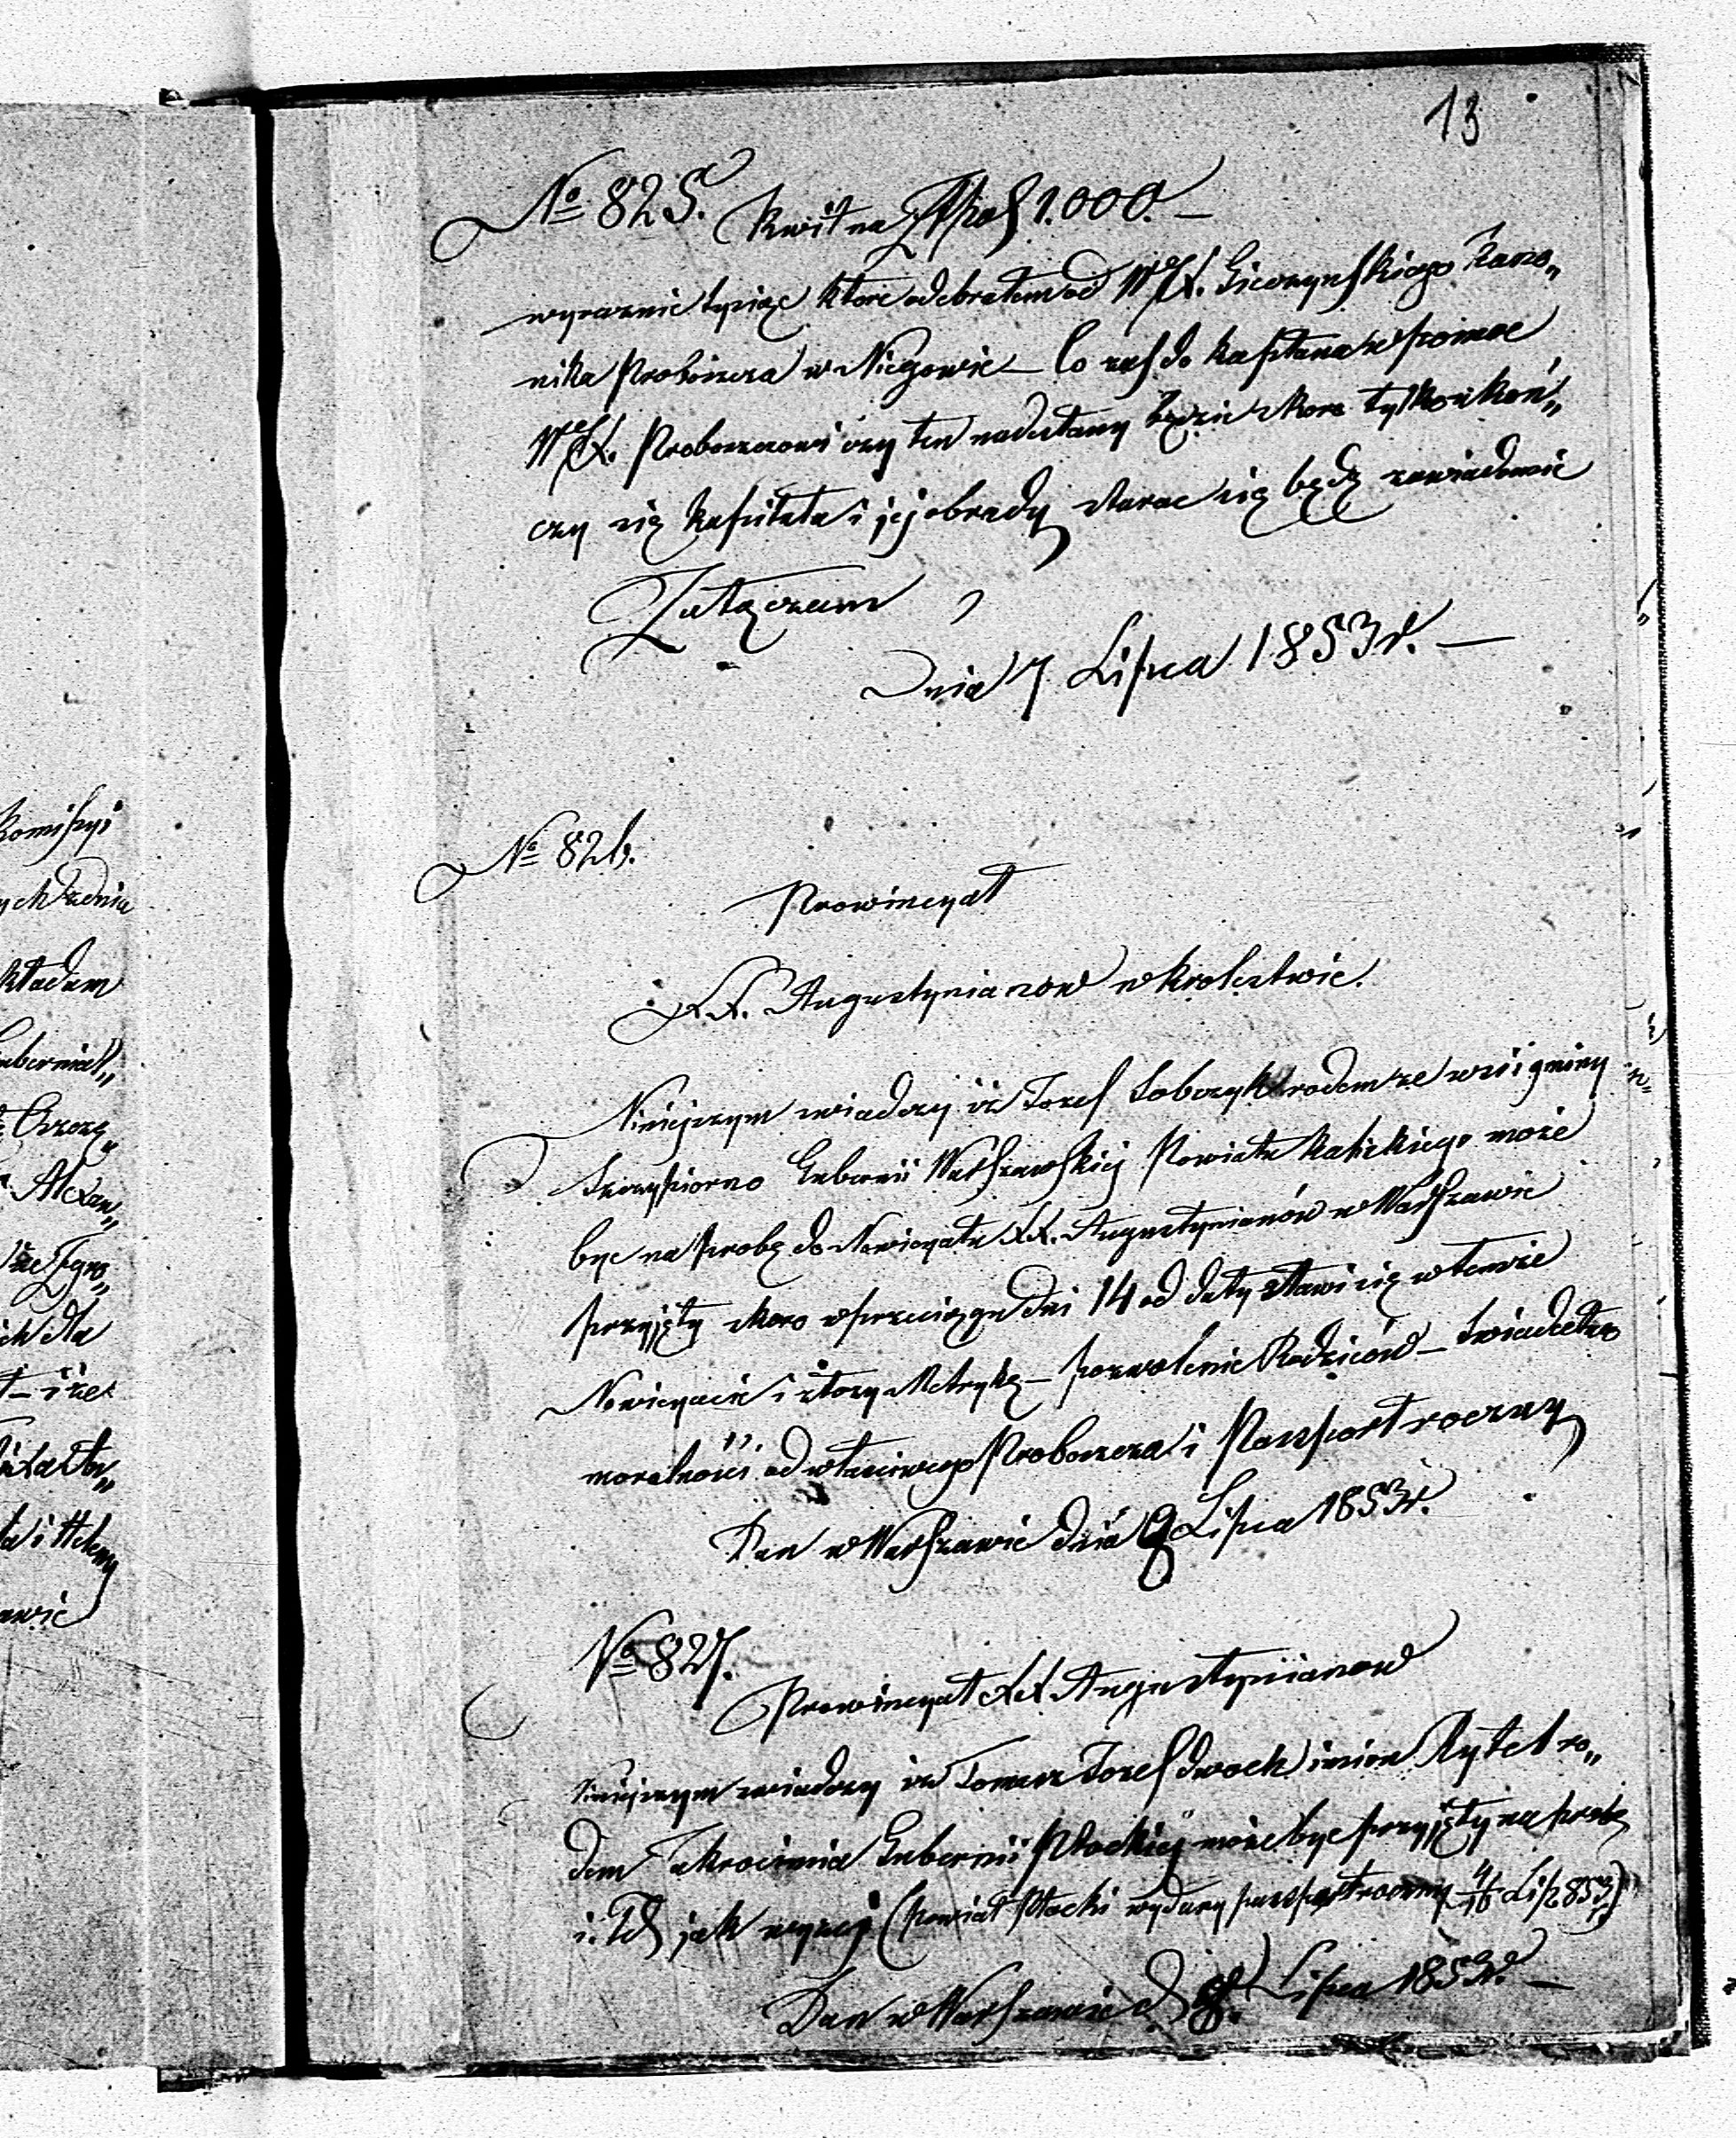 13
№ 825. Kwit na Złpol 1.000. —
wyraznie tysiąc ktore odebrałem od WJX. Gieczynskiego Kano„
nika Proboszcza w Niegowie — Co zas do kapłana w pomoc
WJX. Proboszczowi czy ten nadesłany będzie skoro tylko skoń„
czy się kapituła i jej obrady starac się będę zawiadomic
Załączam
Dnia 7 Lipca 1853 r. —
№ 826.
Prowincyał
XX. Augustynianow w Krolestwie.
Niniejszym swiadczy iz Jozef Sobczyk rodem ze wsi i gminy
Szczypiorno Gubernii Warszawskiej Powiatu Kaliskiego może
byc na probę do Nowicyatu XX. Augustynianów w Warszawie
przyjęty skoro w przeciągu dni 14 od daty stawi się w temże
Nowicyacie i złozy Metrykę — pozwolenie Rodziców — swiadectwo
moralności od własciwego Proboszcza i Paszport roczny
Dan w Warszawie dnia 8 Lipca 1853 r.
№ 827.
Prowincyał XX Augustynianow
Niniejszym swiadczy iz Tomasz Jozef dwoch imion Rytel ro„
dem Zakrocimia Gubernii Płockiej może byc przyjęty na probę
i. Td jak wyzej (powiat Płocki wydany paszport roczny 4/16 Lip 853)
Dan w Warszawie d. 8. Lipca 1853 r. —
Komissyi
kładam
Gubernial„
Alexan„
i Heleny